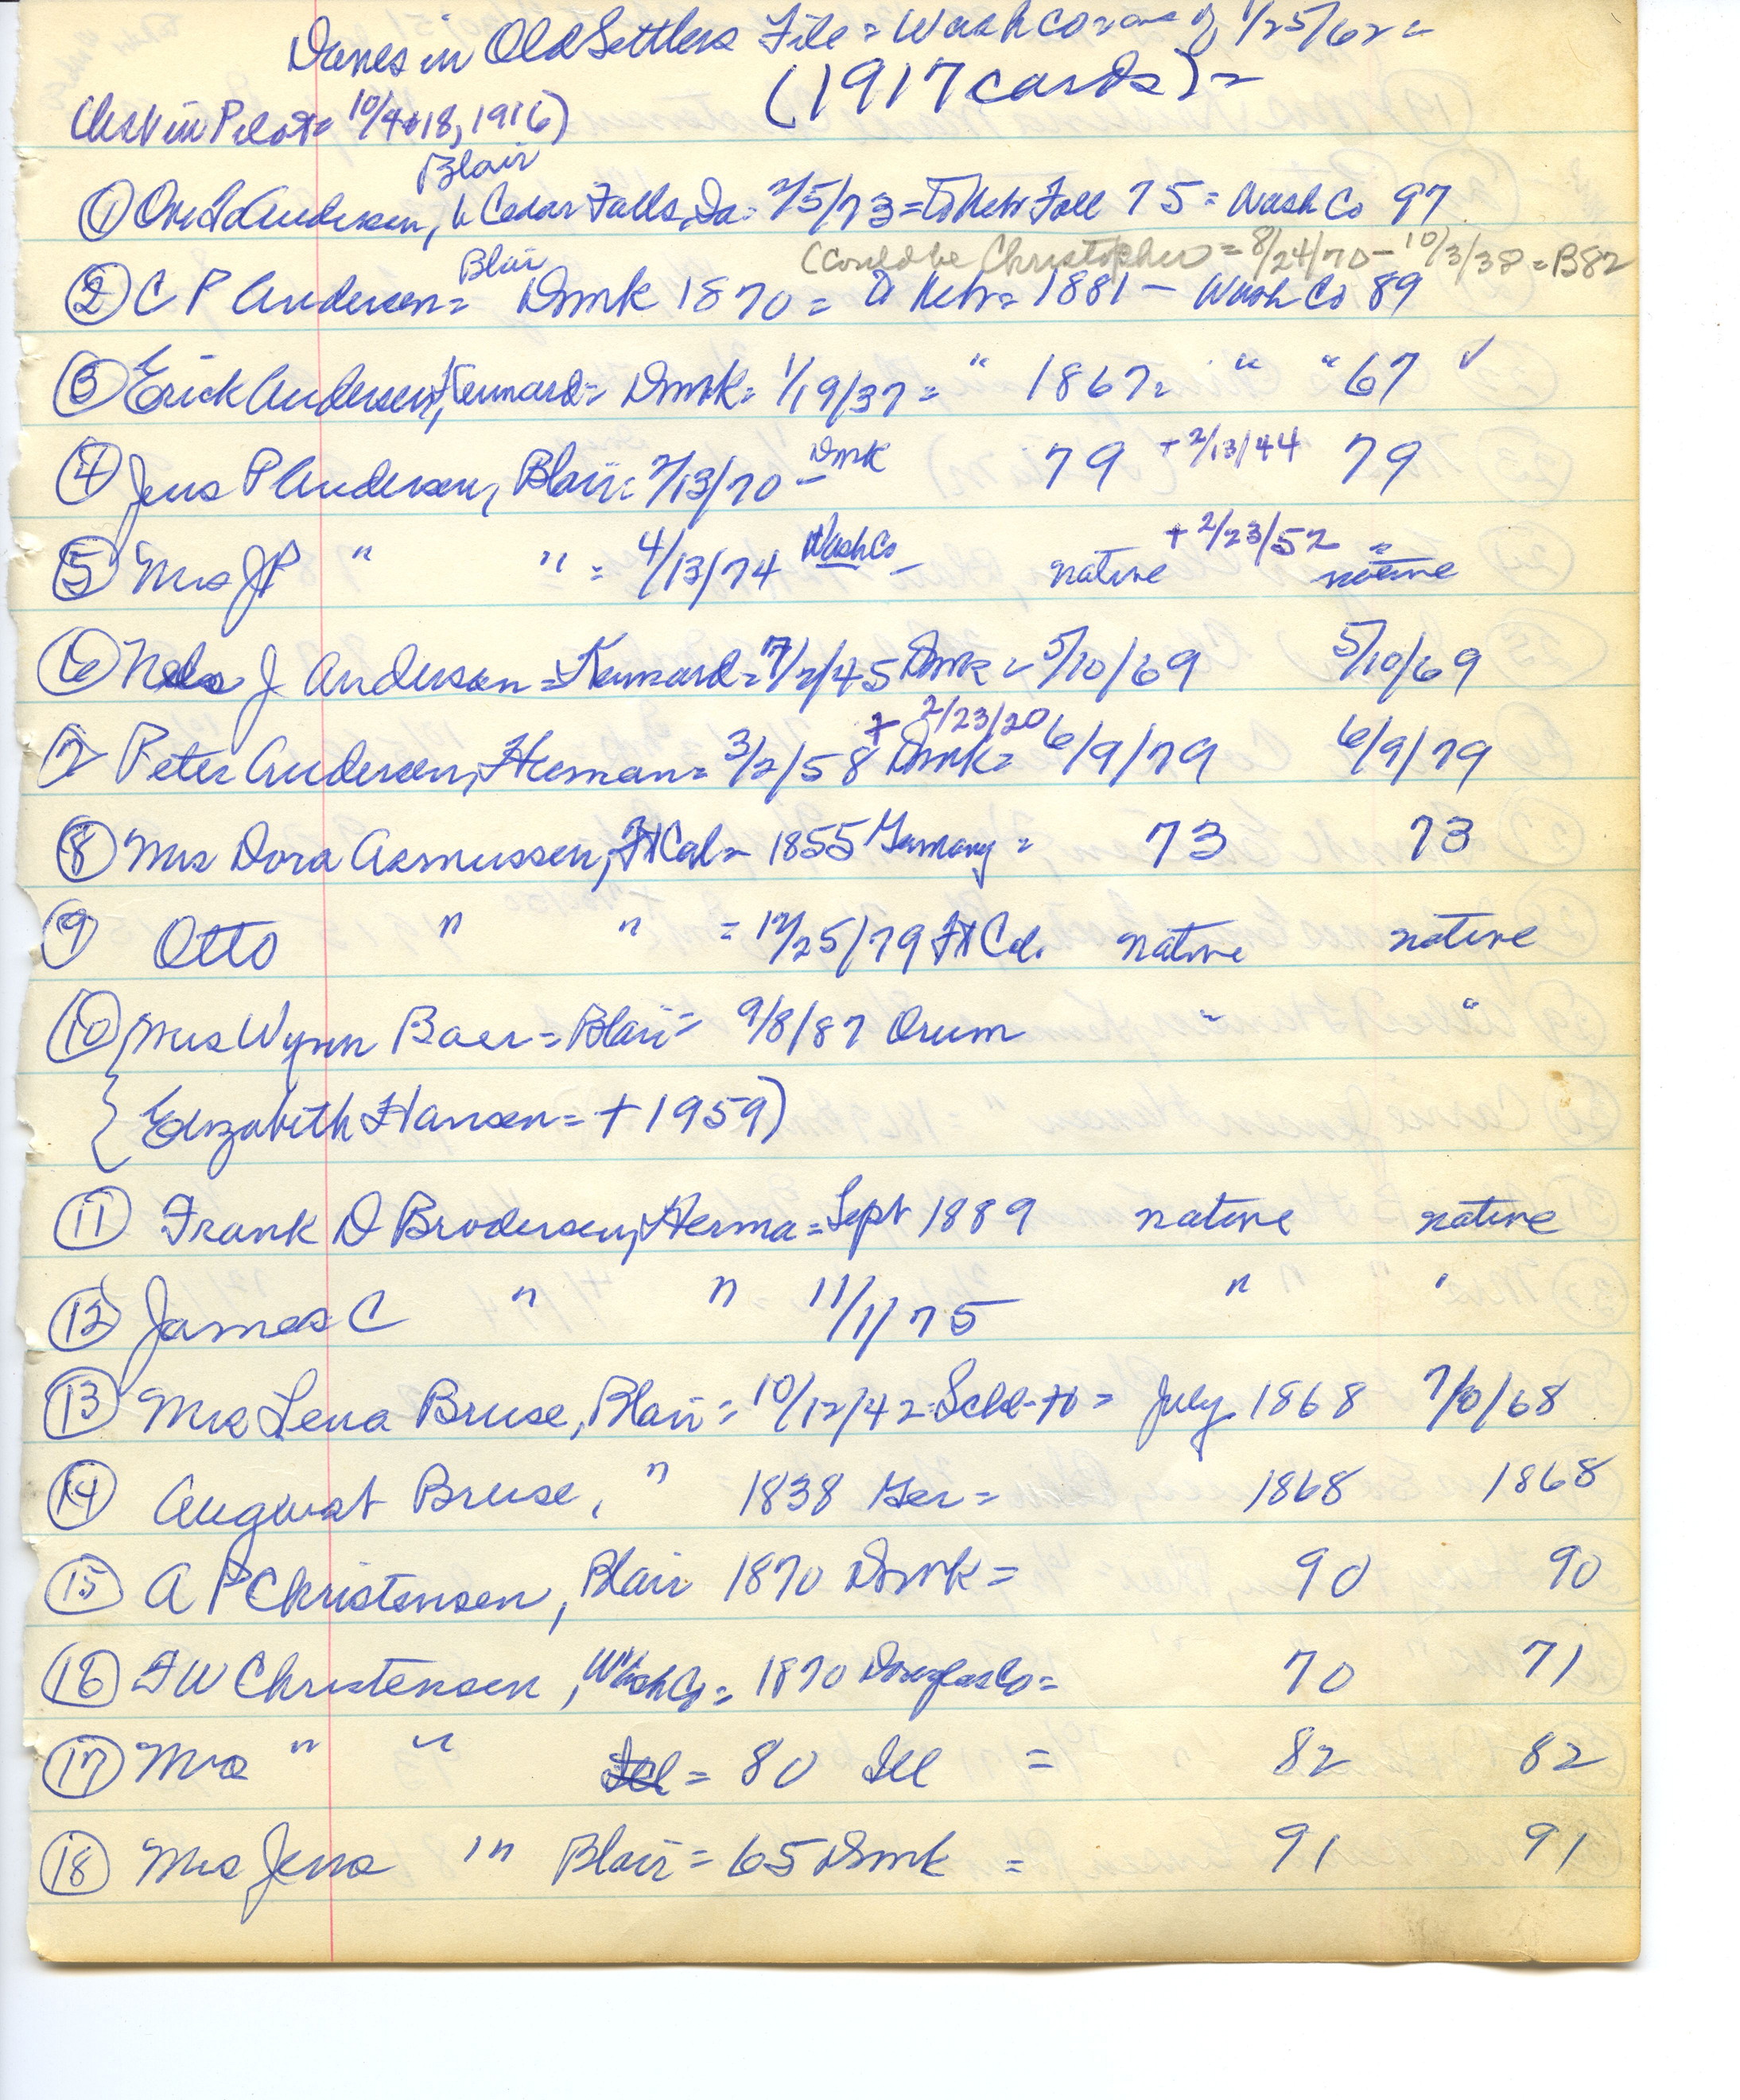 Danes in Old Settlers File = Wash Co as of 1/25/62 =
(1917 cards) =
(List in Pilot = 10/4 18, 1916)
Blair
① Andersen, b Cedar Falls, Ia = 7/5/73 = To Nebr Fall 75 = Wash Co 97
(could be Christopher = 8/24/70 - 10/3/38 = B82
Blair
② C P Andersen = Dmk 1870 = To Nebr = 1881 - Wash Co 89
③ Erick Andersen, Kennard = Dmk = 1/19/37 = " 1867 = " " 67 ✓
④ Jens P Andersen, Blair = 7/13/70 - Dmk 79 + 2/13/44 79
⑤ Mrs JP " " = 4/13/74 Wash Co - native + 2/23/52 " native
⑥ Nels J Andersen = Kennard = 7/2/45 Dmk = 5/10/69 5/10/69
+ 2/23/20
⑦ Peter Andersen, Herman = 3/2/58 Dmk = 6/9/79 6/9/79
⑧ Mrs Dora Asmussen, Ft Cal = 1855 Germany = 73 73
⑨ Otto " " = 12/25/79 Ft Cal. native native
⑩ Mrs Wynn Baer = Blair = 9/8/87 Orum " "
{ Elizabeth Hansen = + 1959)
⑪ Frank D Brodersen, Herma = Sept 1889 native native
⑫ James C " " 11/1/75 " "
⑬ Mrs Lena Bruse, Blair = 10/12/42 = Schl-H = July 1868 7/0/68
⑭ August Bruse, " 1838 Ger = 1868 1868
⑮ A P Christensen, Blair 1870 Dmk = 90 90
⑯ F W Christensen, Wash Co = 1870 Douglas Co = 70 71
⑰ Mrs " " = 80 Ill = 82 82
⑱ Mrs Jens " Blair = 65 Dmk = 91 91